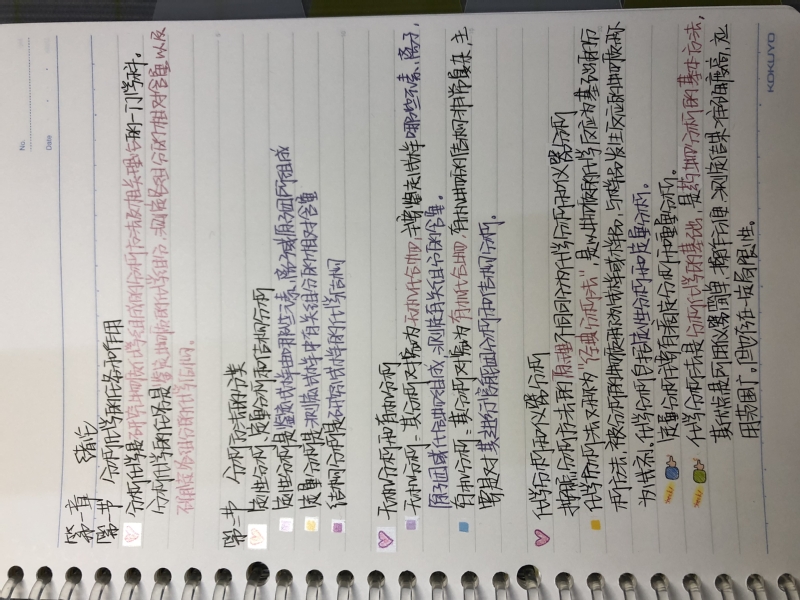 No.
Date
第一章 绪论
第一节 分析化学的任务和作用
分析化学是研究物质化学组成的分析方法及相关理论的一门学科。
分析化学的任务是鉴定物质的化学组分、测定各组分的相对含量以及
不用确定物质的化学结构。
第二节 分析方法的分类
定性分析、定量分析和结构分析
定性分析是鉴定试样由哪些元素、离子或原子团所组成
定量分析是测定试样中有关组分的相对含量
结构分析是研究试样的化学结构
无机分析和有机分析
无机分析:其分析对象为无机化合物,主要鉴定试样哪些元素、离子、
原子团或化合物组成,测定有关组分的含量。
有机分析:其分析对象为有机化合物,有机物的结构非常复杂,主
要是对其进行官能团分析和结构分析。
化学分析和仪器分析
根据分析方法的原理不同分为化学分析和仪器分析
化学分析法又称为"经典分析法",是以物质的化学反应为基础的分
析方法,被分析的物质称为试样或样品,与样品发生反应的物质称
为试剂。化学分析包括定性分析和定量分析。
定量分析主要有滴定分析和重量分析。
化学分析法是分析化学的基础,是药物分析的基本方法,
其优点是所用仪器简单、操作方便、测定结果准确度高,应
用范围广。但也存在一定局限性。
KOKUYO